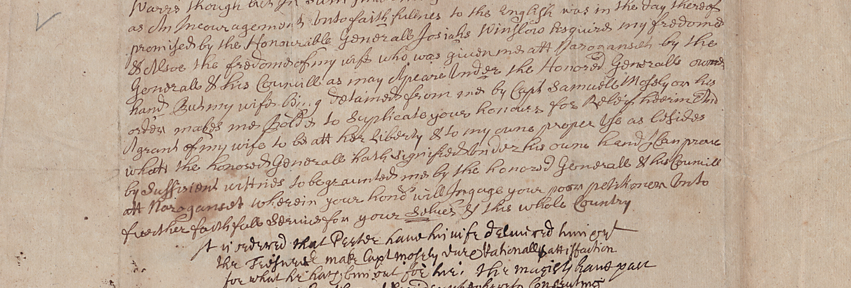 as An Incouragement Unto faithfullnes to the English was in the day thereof
promised by the Honourable Generall Josiah Winslow Esquire my freedome
& Alsoe the fredome of my wife who was given me att Naroganseh by the
Generall & his Councill as may Apeare Under the Honored Generalls owne
hand But my wife Being detained from me by Capt Samuell Mosely or his
order makes me Bold to Suplicate your honours for Releife heerin And
A grant of my wife to be att her Liberty & to my owne proper Use as besides
whatt the honored Generall hath signified Under his owne hand I can prove
by sufficient witnes to be graunted me by the honored Generall & his Councill
att Naroganset wherein your honrs will Ingage your poor petitioner Unto
further faithfull service for your Selves & this whole Country
It is ordered that Peeter have his wife delivered him &
the Tresurer make Capt Mosely Rationall satisfaction
for what he hath out for her. The magists have past